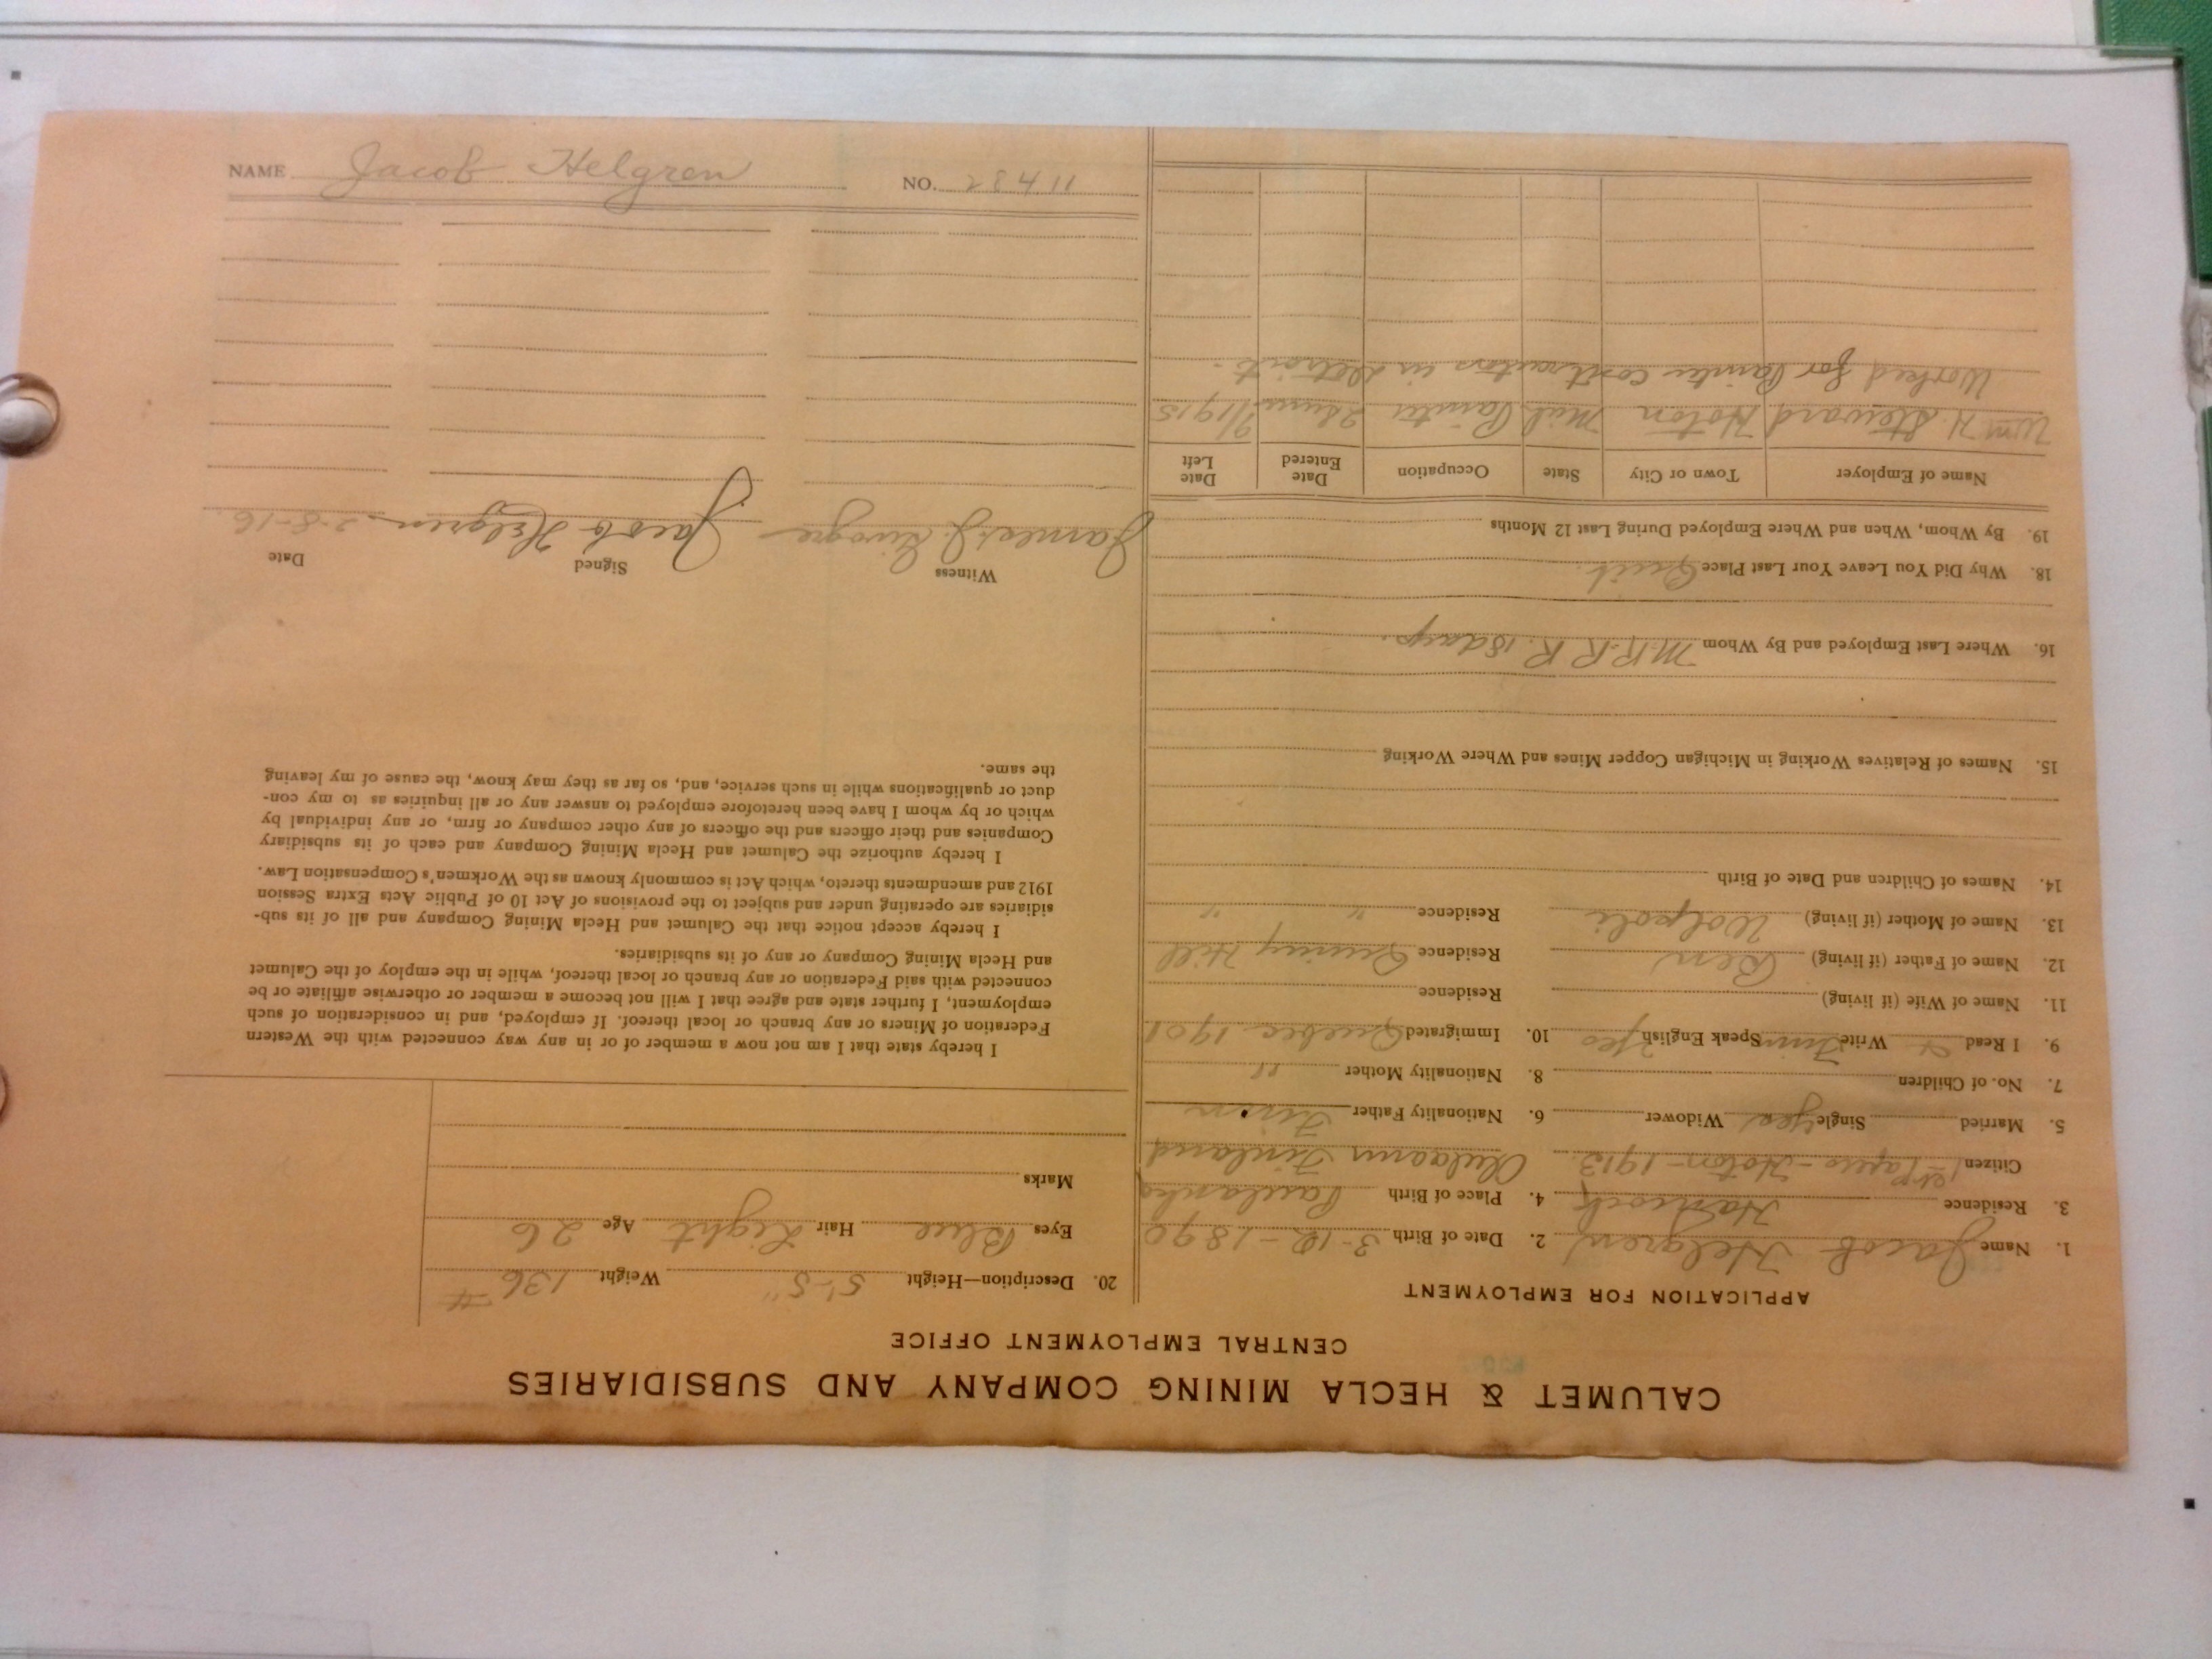 CALUMET & HECLA MINING COMPANY AND SUBSIDIARIES
CENTRAL EMPLOYMENT OFFICE
APPLICATION FOR EMPLOYMENT
1. Name Jacob Helgren 2. Date of Birth 3-12-1890
3. Residence Hancock 4. Place of Birth
Citizen 1st Papers - Hoton - 1913. Finland
5. Married Single Yes Widower 6. Nationality Father Finn
7. No. of Children 8. Nationality Mother "
9. I Read & Write Finn Speak English Yes 10. Immigrated Quebec 1901
11. Name of Wife (if living) Residence
12. Name of Father (if living) Ben Residence Quincy Hill
13. Name of Mother (if living) Residence " "
14. Names of Children and Date of Birth
15. Names of Relatives Working in Michigan Copper Mines and Where Working
16. Where Last Employed and By Whom M.R.R.R. 18 days.
18. Why Did You Leave Your Last Place Quit.
19. By Whom, When and Where Employed During Last 12 Months
Name of Employer Town or City State Occupation Date Entered Date Left
Wm H. Steward Hoton Mich Painter 9/1 1915
Worked for Painter contractors in Detroit.
20. Description—Height 5'-5" Weight 136 #
Eyes Blue Hair Light Age 26
Marks
I hereby state that I am not now a member of or in any way connected with the Western
Federation of Miners or any branch or local thereof. If employed, and in consideration of such
employment, I further state and agree that I will not become a member or otherwise affiliate or be
connected with said Federation or any branch or local thereof, while in the employ of the Calumet
and Hecla Mining Company or any of its subsidiaries.
I hereby accept notice that the Calumet and Hecla Mining Company and all of its sub-
sidiaries are operating under and subject to the provisions of Act 10 of Public Acts Extra Session
1912 and amendments thereto, which Act is commonly known as the Workmen's Compensation Law.
I hereby authorize the Calumet and Hecla Mining Company and each of its subsidiary
Companies and their officers and the officers of any other company or firm, or any individual by
which or by whom I have been heretofore employed to answer any or all inquiries as to my con-
duct or qualifications while in such service, and, so far as they may know, the cause of my leaving
the same.
Witness Signed Date
James J. Jacob Helgren 2-8-16.
NAME Jacob Helgren NO. 28411